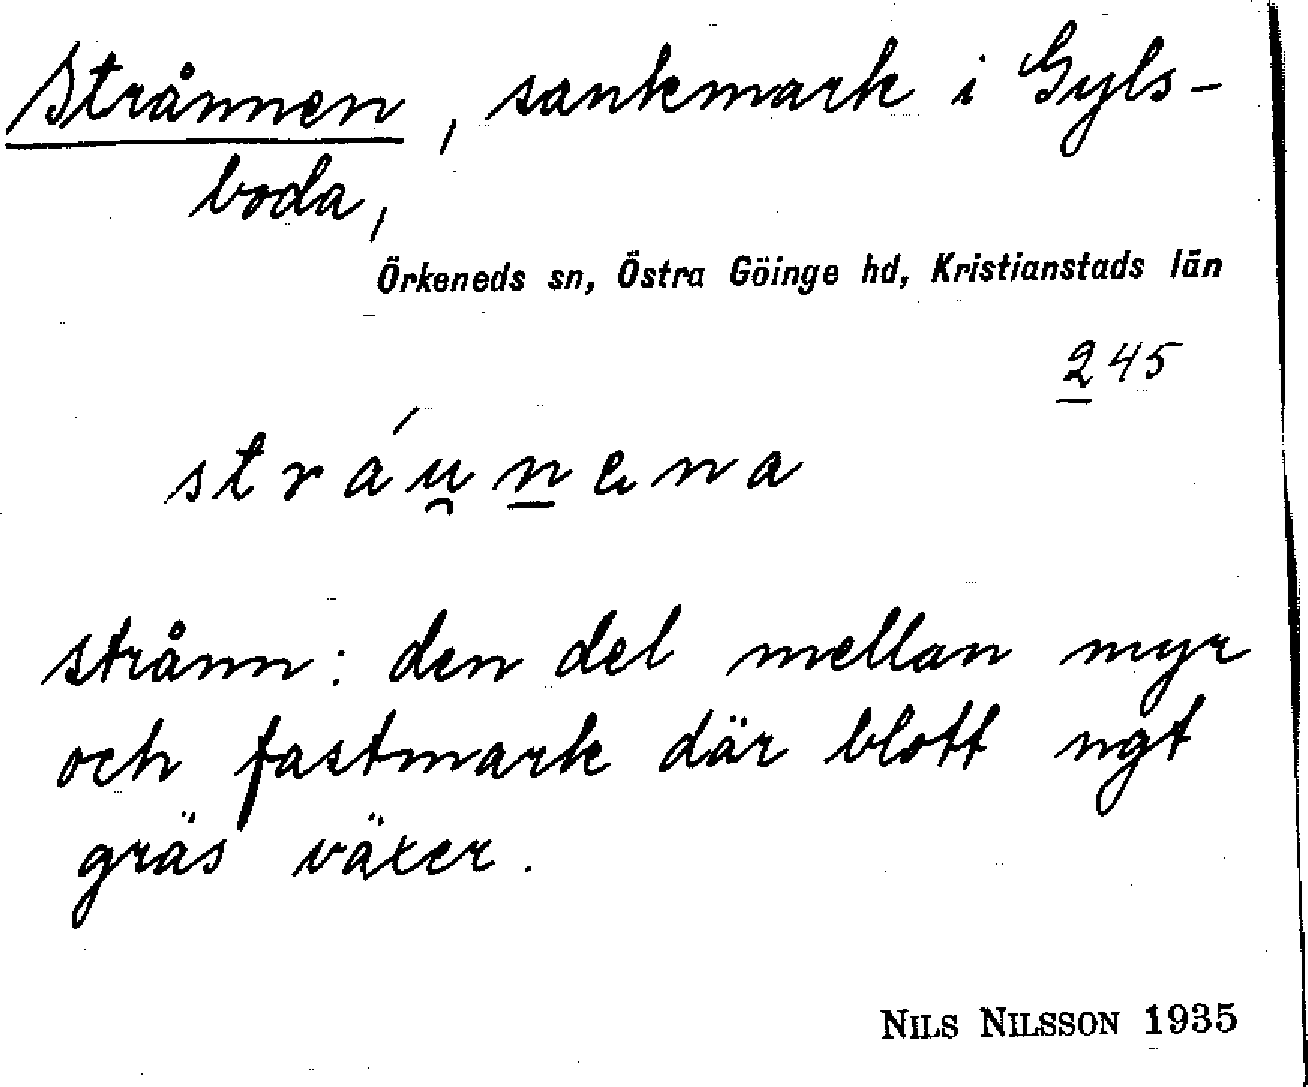 Strånnen, sankmark i Gyls-
boda,
Örkeneds sn, Östra Göinge hd, Kristianstads län
245
stráu̯n̲ena
strånn: den del mellan myr
och fastmark där blott ngt
gräs växer.
NILS NILSSON 1935